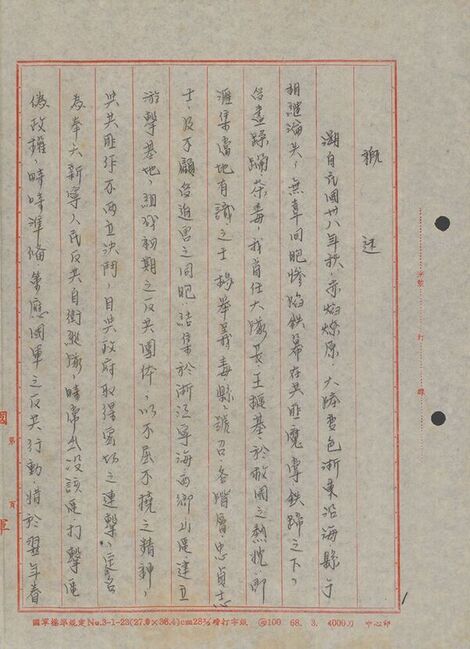 概述
溯自民國卅八年秋,赤焰燎原,大陸變色浙東沿海縣
相繼淪失,無辜同胞慘陷鉄幕在共匪魔掌鉄蹄之下,
蹂躪荼毒,我首任大隊長王振基,於救國之熱忱,即
滙集當地有識之士揭舉義,號召各階層忠貞志
士,及不顧迫害之同胞,結集於浙江寧海西鄉山區建立
游擊基地,組成初期之反共團体,以不屈不撓之精神,
與共匪作不兩立決鬥,自與政府取得密切之連繫,定名
為奉天新寧人民反共自衛縱隊,時常出没該區打擊匪
偽政權,時時準備策應國軍之反共行動,惜於翌年春
國 第 頁 軍
國軍標準規定No.3-1-23(27.9×36.4)cm28磅打字紙 100 68. 3. 4000刀 中心印